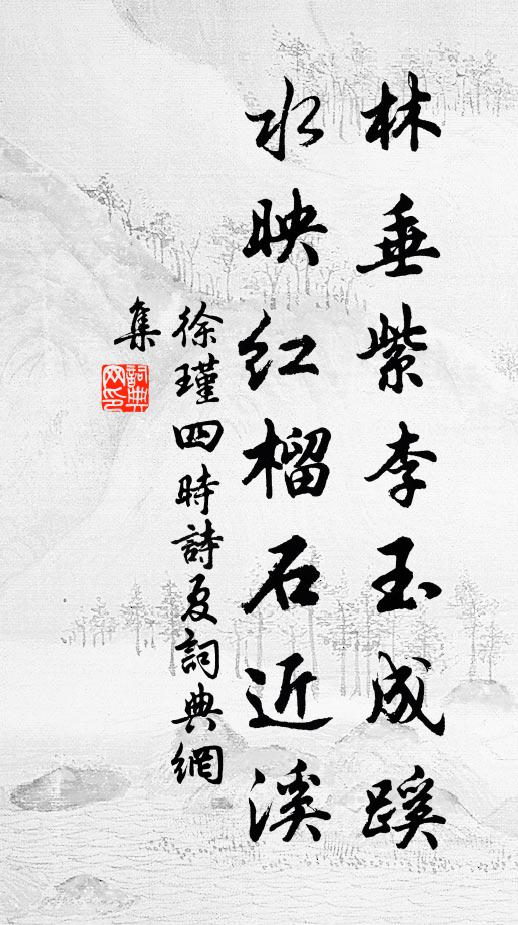 林垂紫李玉成蹊
水映红榴石近溪
徐瑾四時詩夏詞典網
集
詞典網印